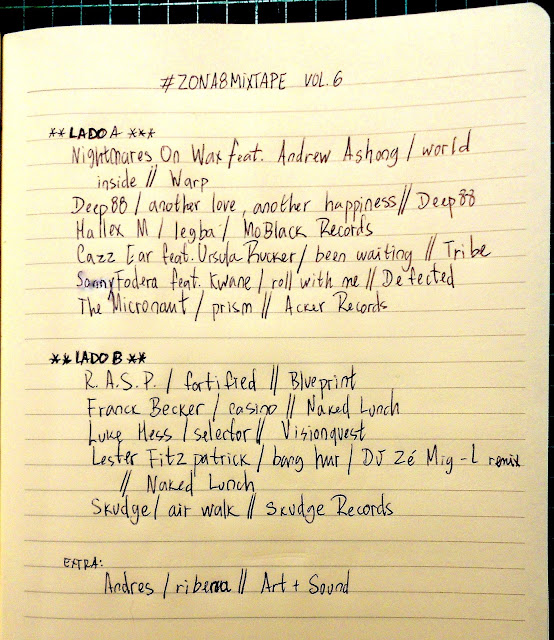 #ZONA8MIXTAPE VOL.6
** LADO A ***
Nightmares On Wax feat. Andrew Ashong / world
inside // Warp
Deep88 / another love, another happiness // Deep88
Hallex M / legba / MoBlack Records
Cazz Ear feat. Ursula Rucker / been waiting // Tribe
Sonny Fodera feat. Kwane / roll with me // Defected
The Micronaut / prism // Acker Records
** LADO B **
R.A.S.P. / fortified // Blueprint
Franck Becker / casino // Naked Lunch
Luke Hess / selector // Visionquest
Lester Fitzpatrick / bang hur / DJ Zé Mig-L remix
// Naked Lunch
Skudge / air walk // Skudge Records
EXTRA:
Andres / ribera // Art + Sound